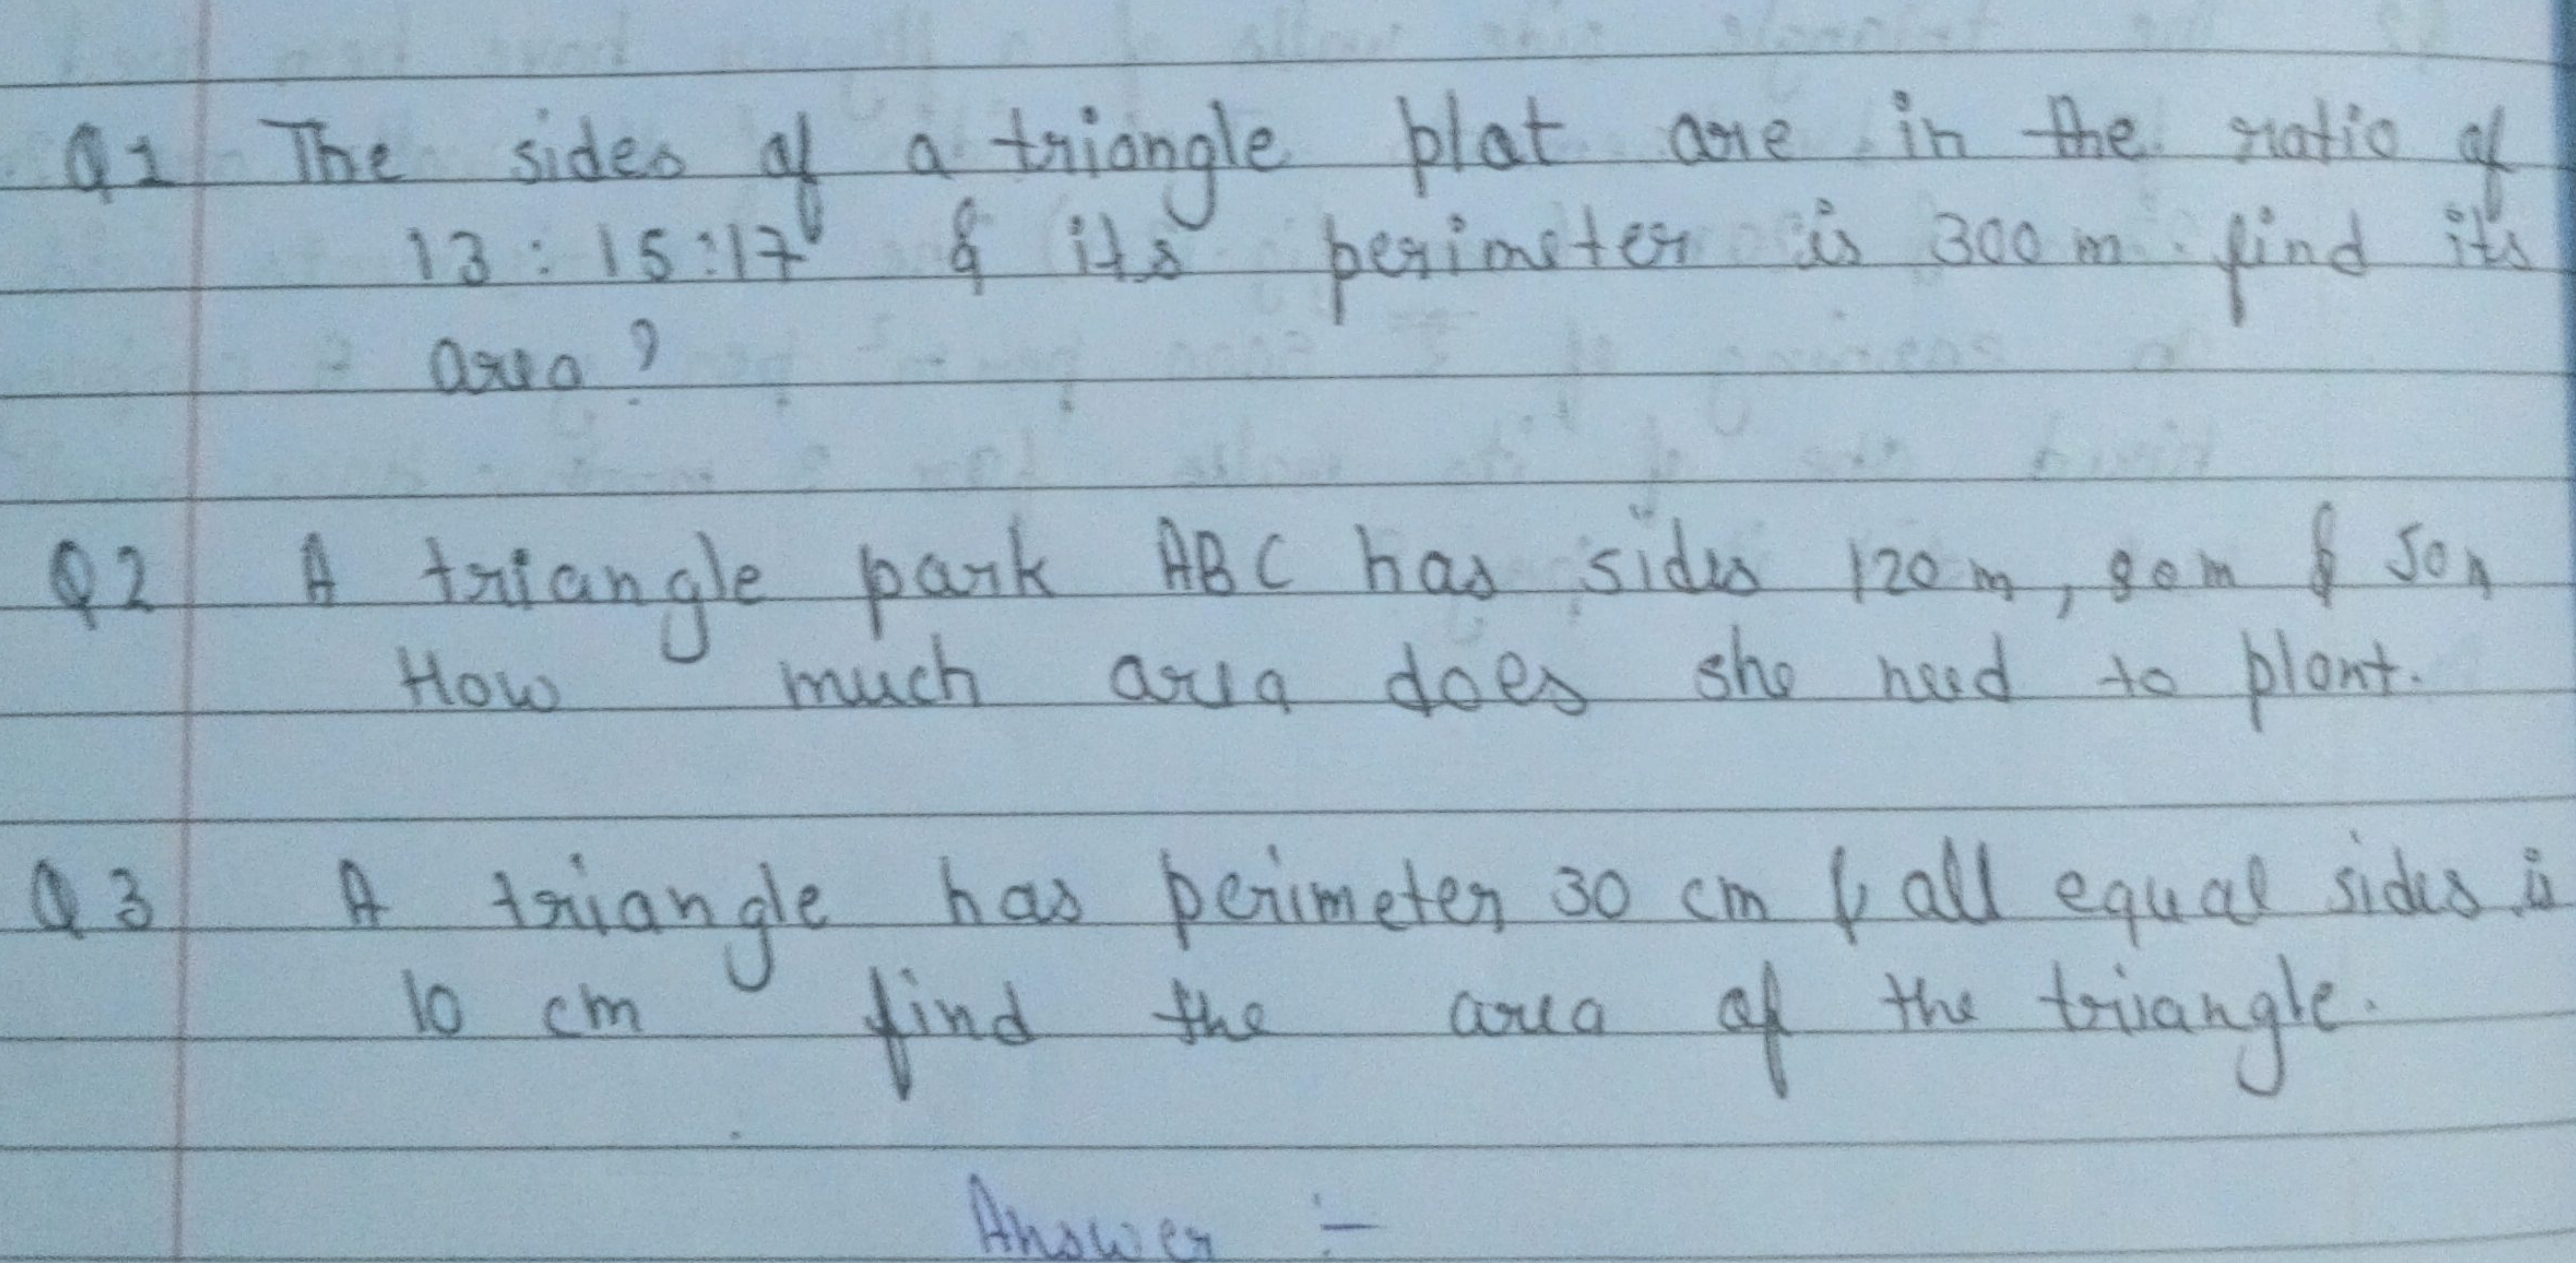 Q1 The sides of a triangle plot are in the ratio of
13 : 15 : 17 & its perimeter is 300 m . find its
area ?
Q2 A triangle park ABC has sides 120 m , 80 m & 50 m
How much area does she need to plant.
Q3 A triangle has perimeter 30 cm & all equal sides is
10 cm find the area of the triangle.
Answer :-